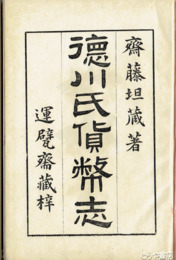 齋藤坦蔵著
德川氏貨幣志
運甓齋藏梓